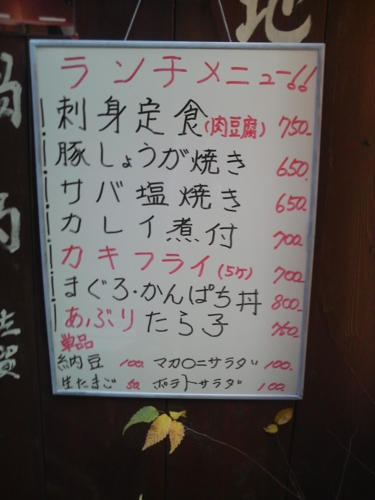 地
ランチメニュー!!
刺身定食(肉豆腐) 750-
豚しょうが焼き 650.
サバ塩焼き 650.
カレイ煮付 700.
カキフライ(5ケ) 700.
まぐろ・かんぱち丼 800-
あぶりたら子 750.
単品
納豆 100. マカロニサラダ 100.
生たまご 50. ポテトサラダ 100.